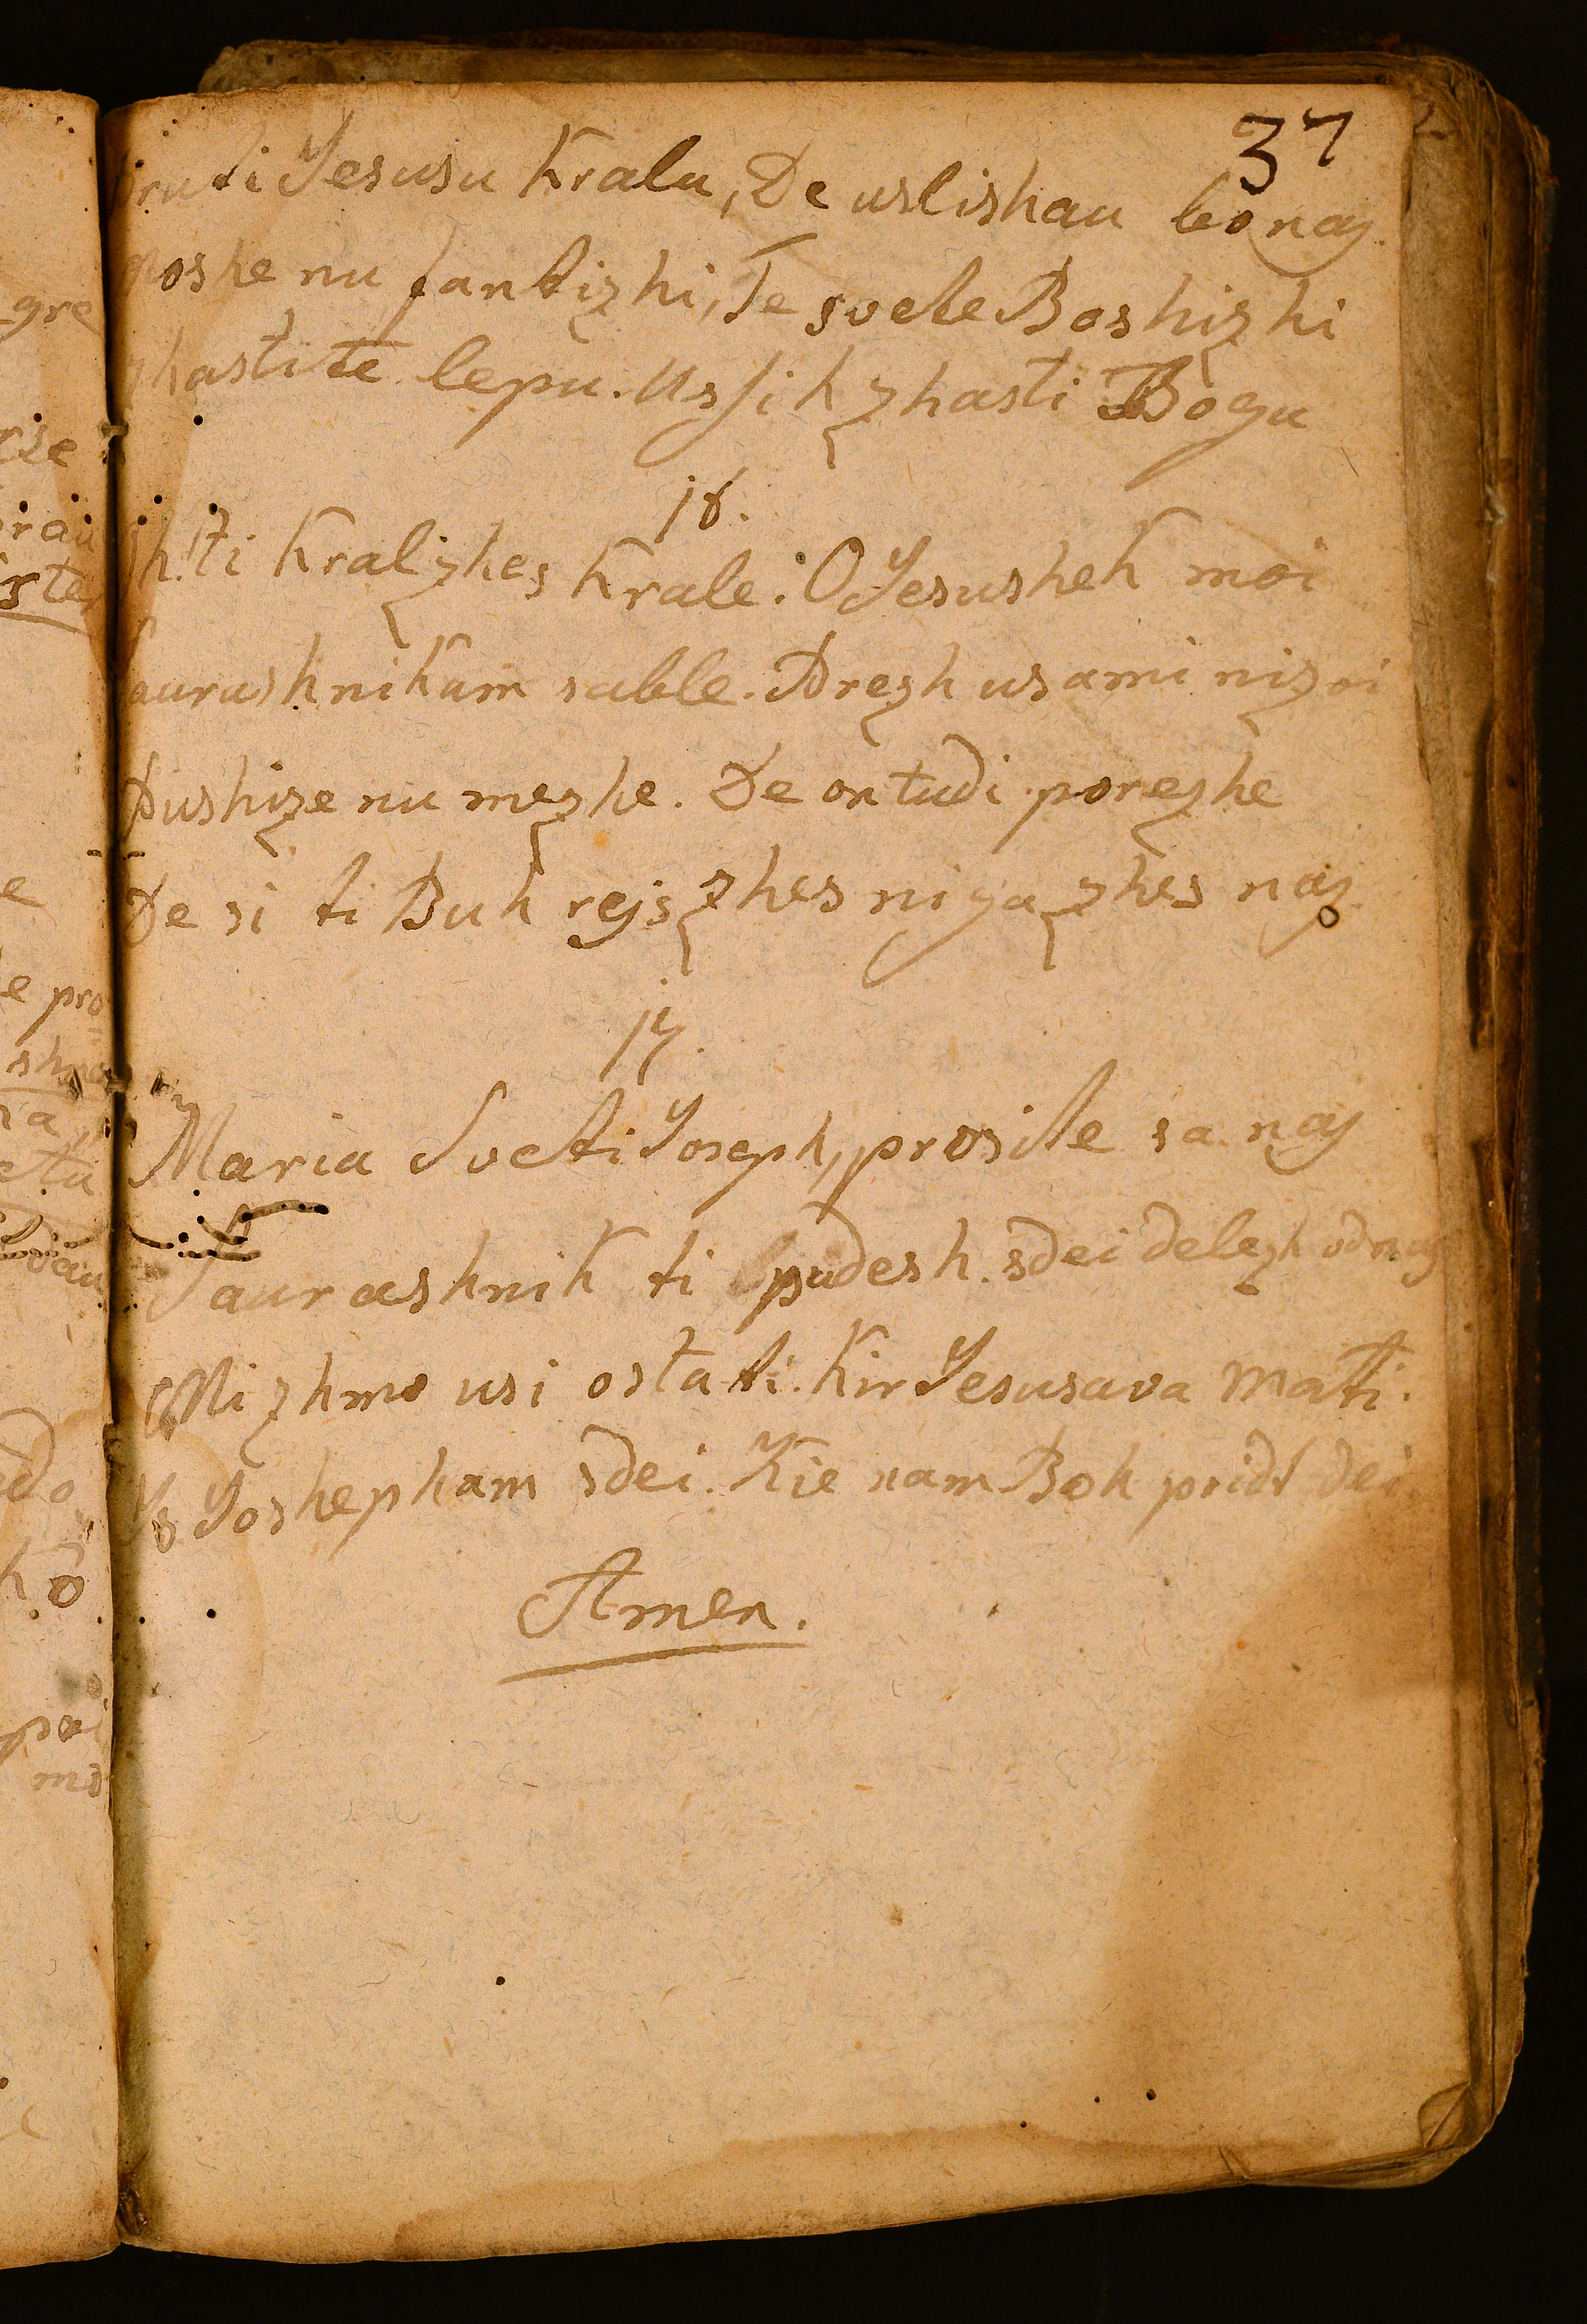 37
pruti Jesusu Kralu, De uslishau bo naj
moshe nu fantizhi, Te svete Boshizhi
zhastite lepu. Usjih zhasti Bogu
18.
Sh. Ti Kral zhes Krale. O Jesushek moi
Saurashnikam sable. Drezh usami nizoi
Dushize nu mezhe. De on tudi porezhe
De si ti Buh rejs zhes niga zhes naj
19.
Maria Sveti Joseph, prosite sa naj
Saurashnik ti pudesh. sdei delezh od naj
Mi zhmo usi ostati. Kir Jesusava mati.
Is Joshepham sdei. Kie nam Boh pridt dei.
Amen.